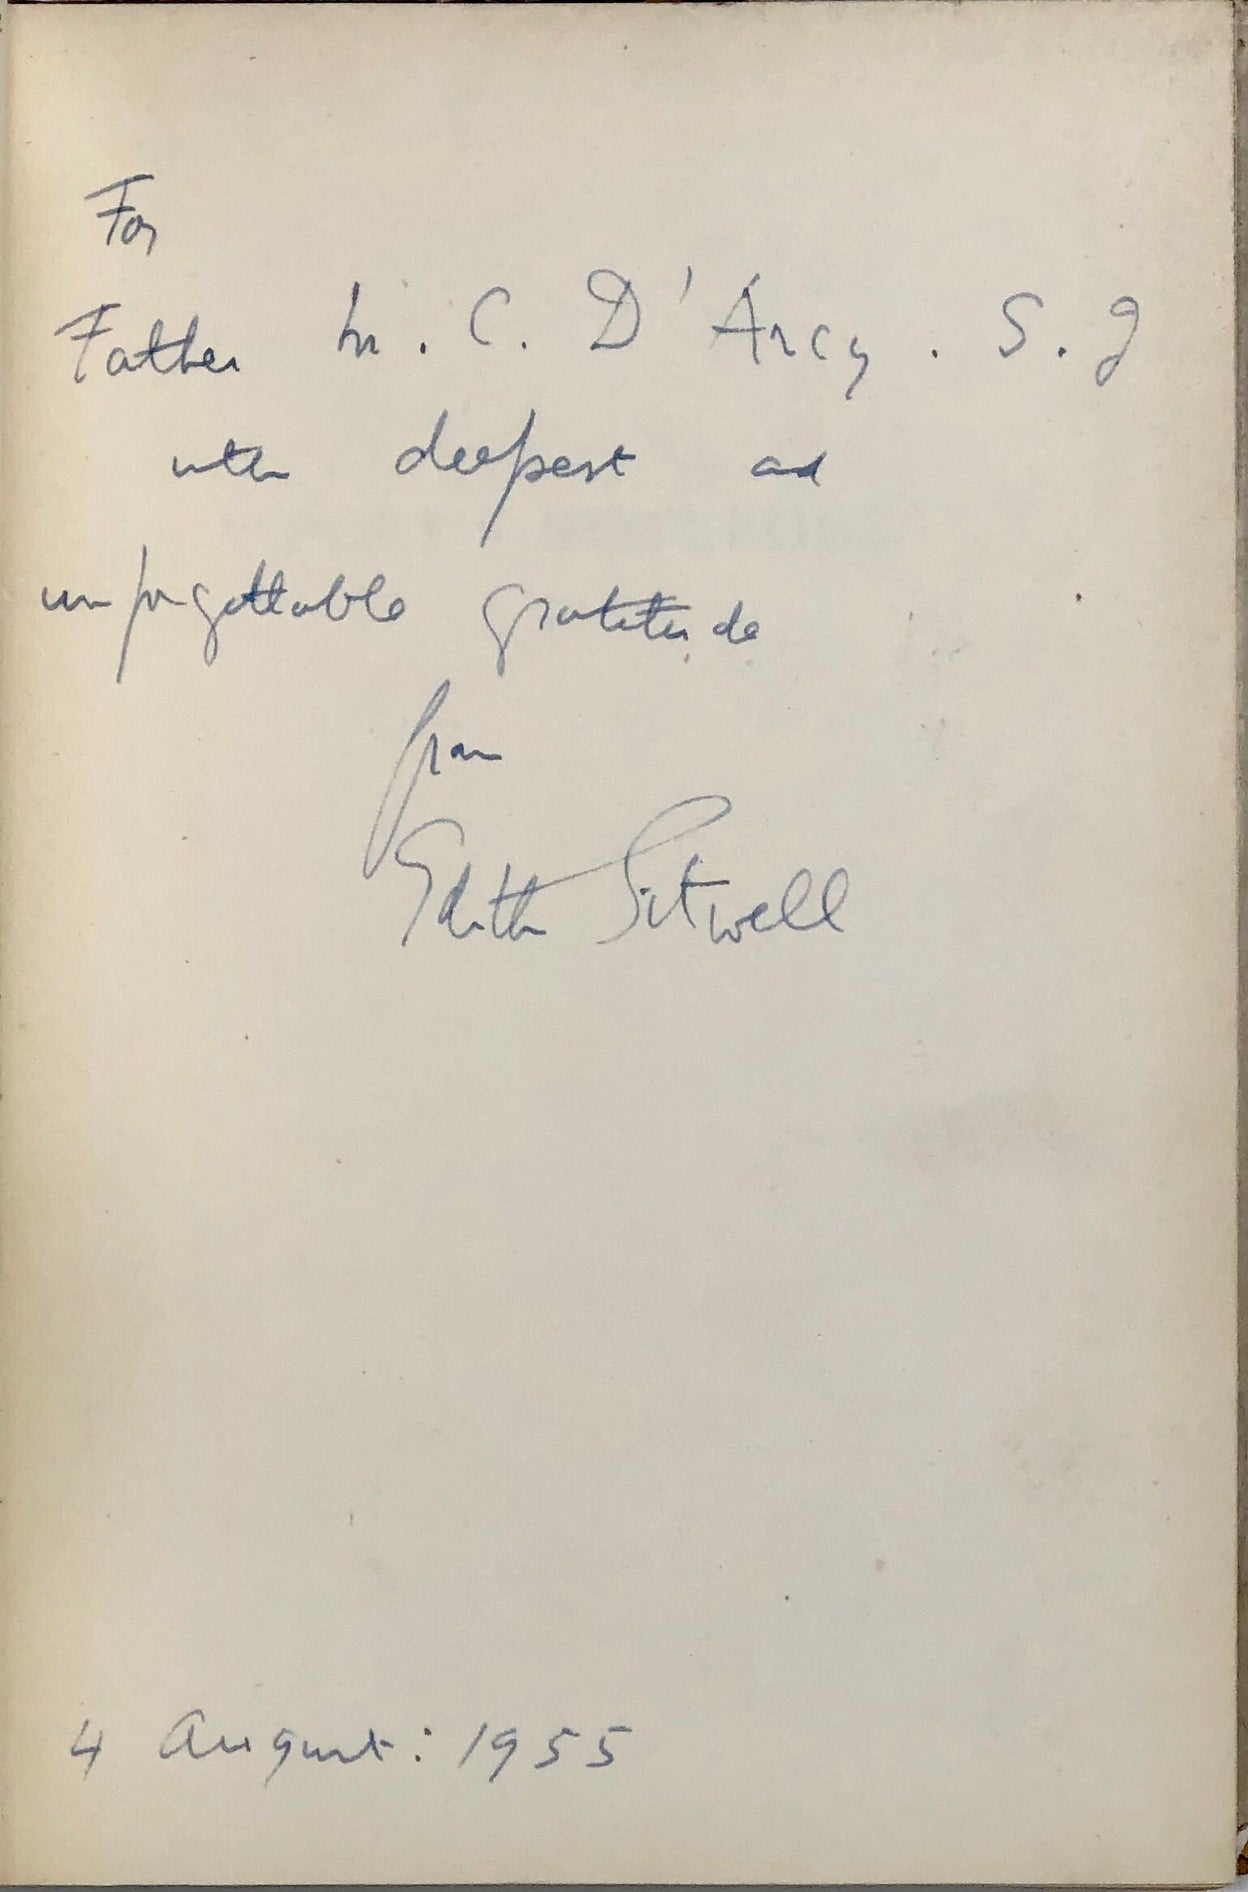 For
Father M. C. D'Arcy. S. J
with deepest and
unforgettable gratitude
from
Edith Sitwell
4 August: 1955